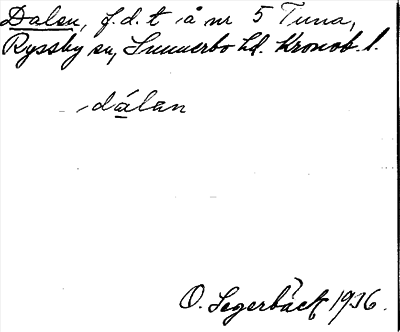 Dalen, f.d.t å nr 5 Tuna,
Ryssby sn, Sunnerbo hd. Kronob. l.
dálan
O. Segerbäck 1936.